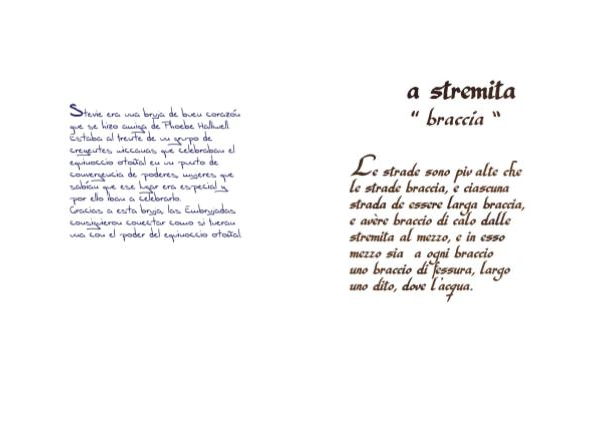 Stevie era una bruja de buen corazón
que se hizo amiga de Phoebe Halliwell
Estaba al frente de un grupo de
creyentes wiccanas que celebraban el
equinoccio otoñal en un punto de
convergencia de poderes, mujeres que
sabían que ese lugar era especial y
por ello iban a celebrarlo.
Gracias a esta bruja, las Embrujadas
consiguieron conectar como si fueran
una con el poder del equinoccio otoñal
a stremita
" braccia "
Le strade sono piv alte che
le strade braccia, e ciascuna
strada de essere larga braccia,
e avère braccio di calo dalle
stremita al mezzo, e in esso
mezzo sia a ogni braccio
uno braccio di fessura, largo
uno dito, dove l'acqua.